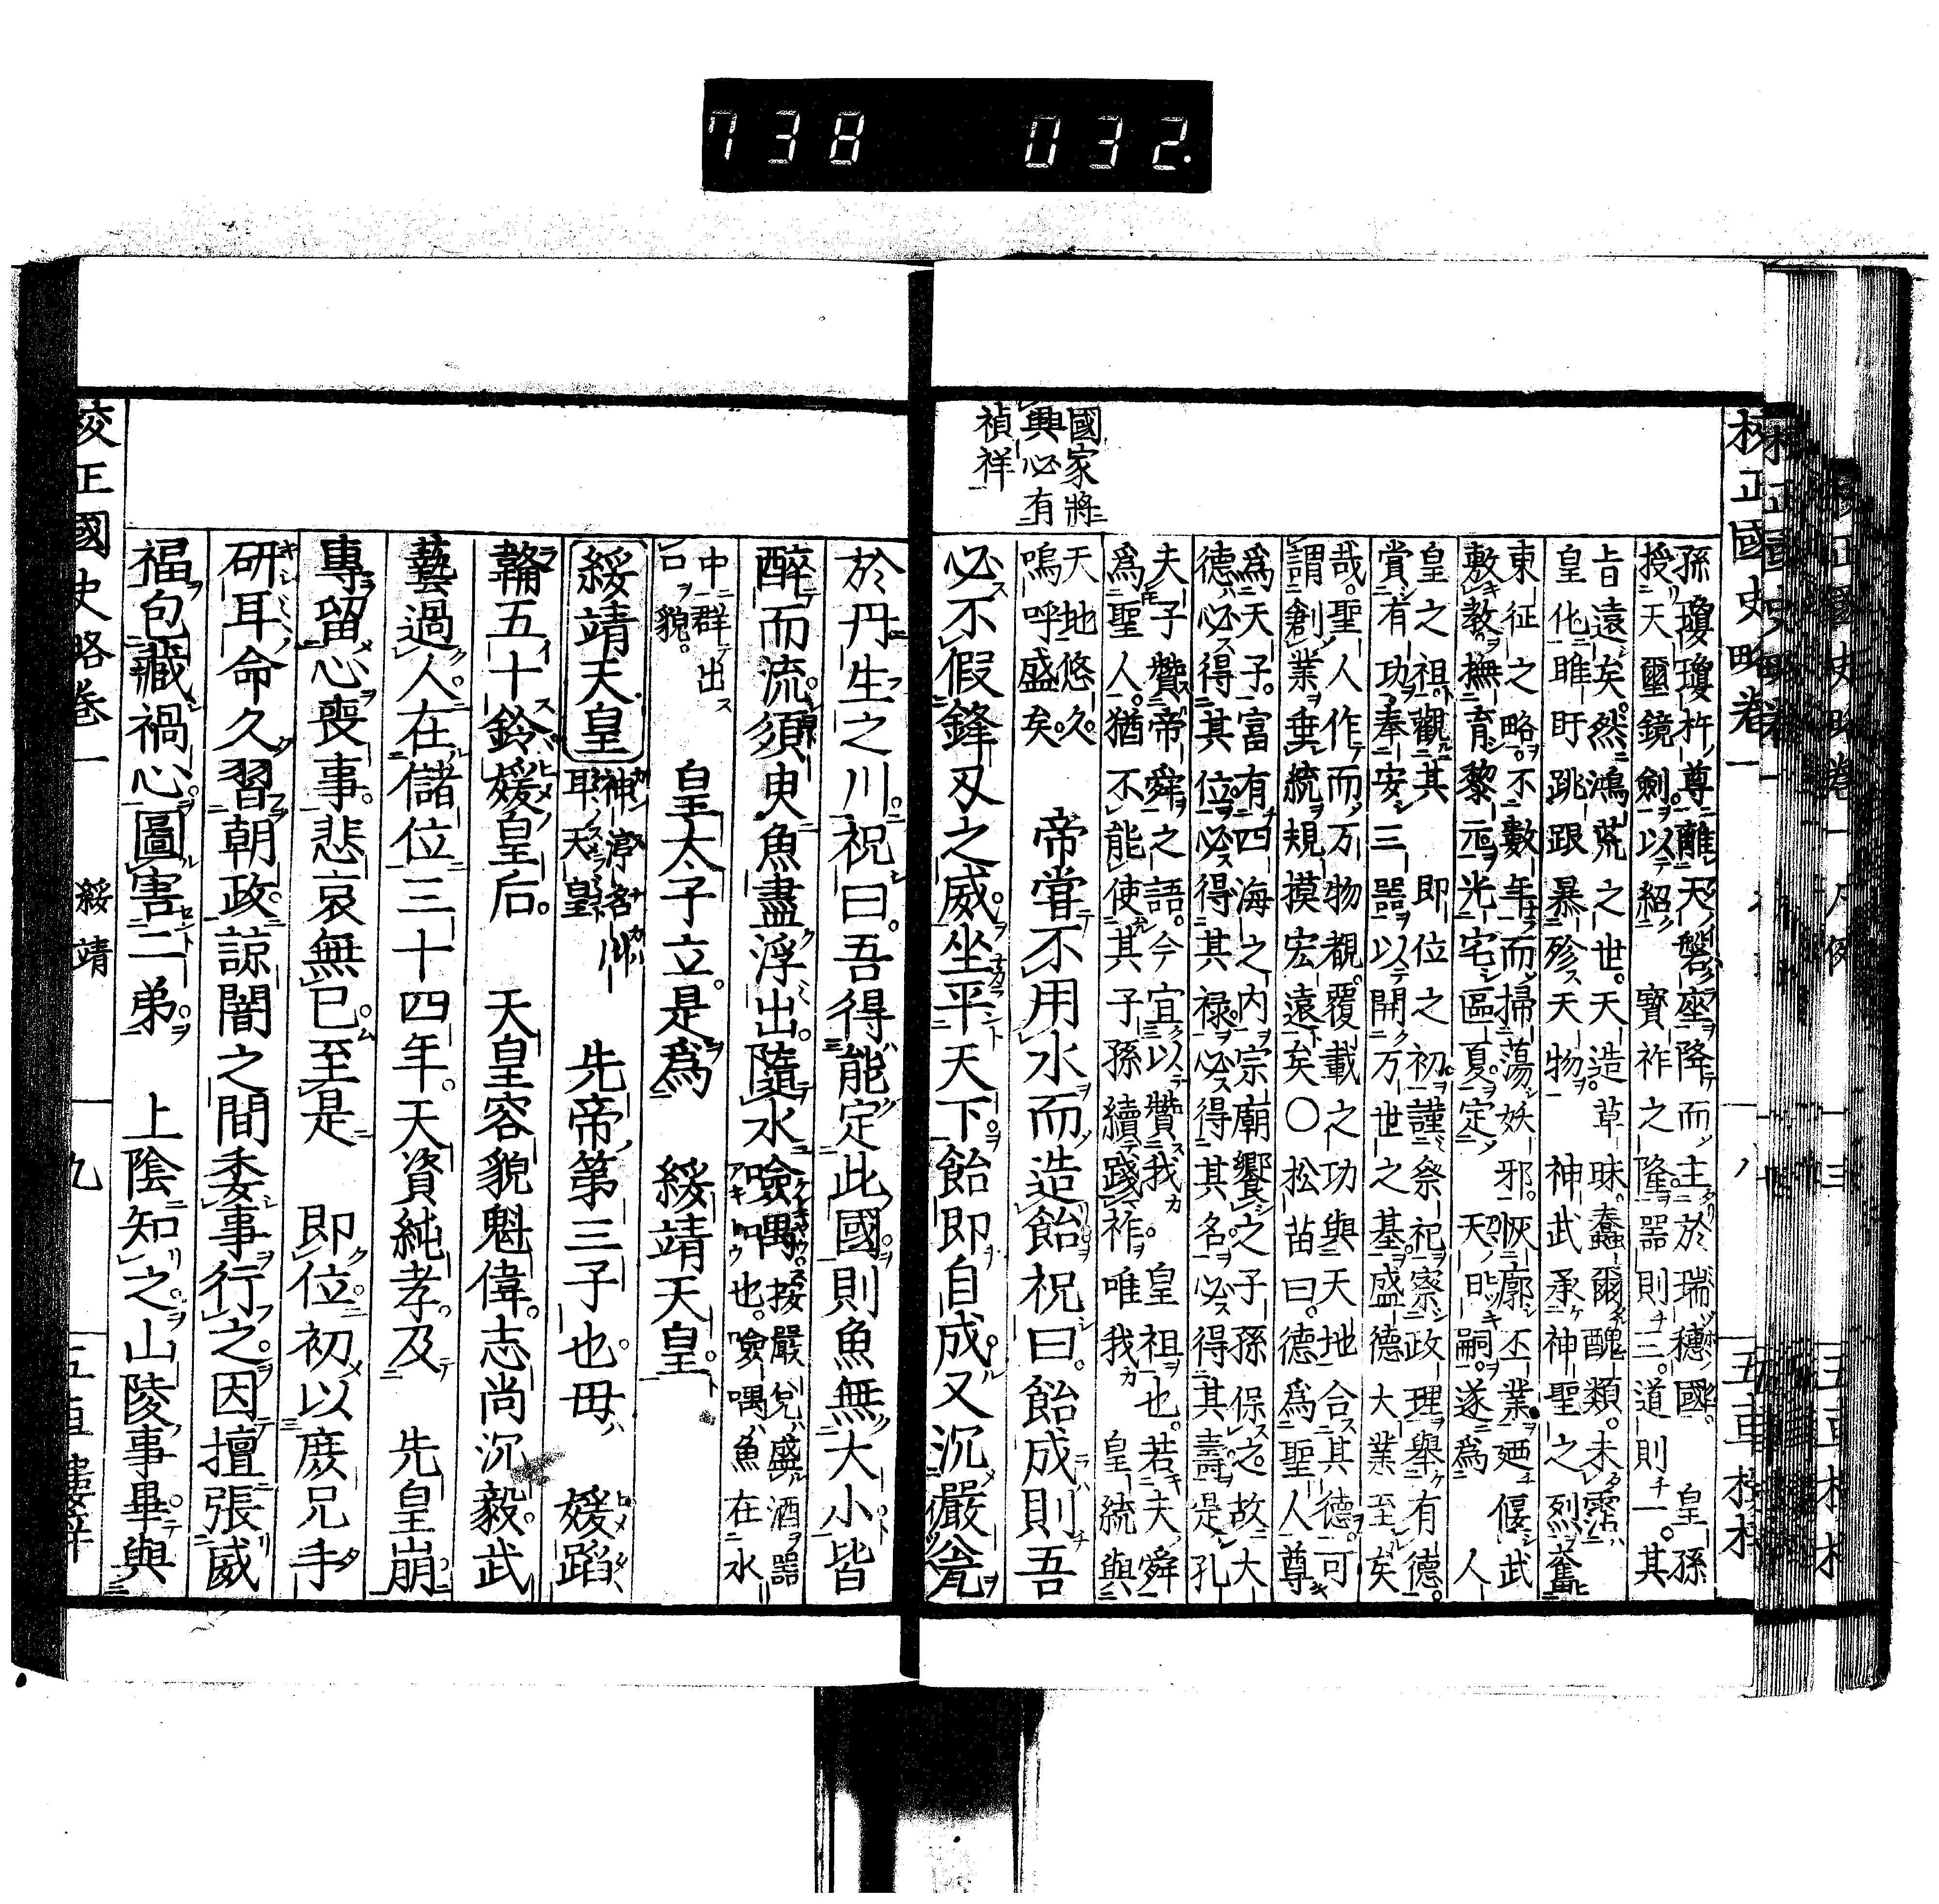 738 032.
校正國史略卷一
國家將
興必有
禎祥
孫瓊瓊杵尊離天磐座降而主於瑞穗國。皇孫
授天璽鏡劍以紹寶祚之隆器則三。道則一。其
旨遠矣。然鴻荒之世。天造草昧。蠢爾醜類。未霑
皇化。睢盱跳踉暴殄天物。神武承神聖之烈奮
東征之略。不數年而掃蕩妖邪。恢廓丕業。廼偃武
敷教撫育黎元光宅區夏。定天日嗣。遂爲人
皇之祖。觀其即位之初。謹祭祀察政理。舉有德。
賞有功奉安三器以開万世之基。盛德大業至矣
哉。聖人作而万物覩。覆載之功與天地合其德。可
謂創業垂統規摸宏遠矣○松苗曰。德爲聖人尊
爲天子。富有四海之内宗廟饗之子孫保之。故大
德必得其位。必得其祿。必得其名。必得其壽。是孔
夫子贊帝舜之語。今宜以贊我皇祖也。若夫舜
爲聖人。猶不能使其子孫續踐祚。唯我皇統與
天地悠久。
嗚呼盛矣。
帝嘗不用水而造飴祝曰。飴成則吾
必不假鋒刄之威。坐平天下。飴即自成又沉嚴瓮
於丹生之川。祝曰。吾得能定此國。則魚無大小皆
醉而流。須臾魚盡浮出。隨水噞喁
按嚴瓮盛酒器
也。噞喁魚在水
中群出
口貌。
皇太子立。是爲綏靖天皇。
綏靖天皇
神渟名川
耳天皇
先帝第三子也。母媛蹈
韛五十鈴媛皇后。天皇容貌魁偉。志尚沉毅。武
藝過人。在儲位三十四年。天資純孝。及先皇崩。
專留心喪事。悲哀無已。至是即位。初以庶兄手
研耳命久習朝政。諒闇之間委事行之。因擅張威
福包藏禍心。圖害二弟。上陰知之。山陵事畢。與
校正國史略卷一
綏靖
九